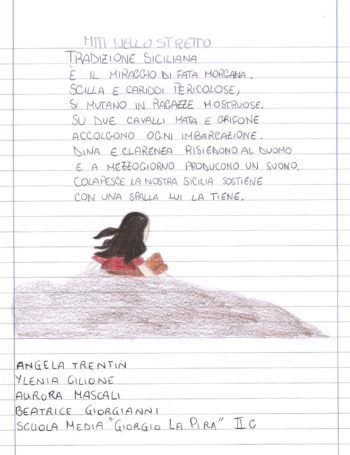 MITI NELLO STRETTO
TRADIZIONE SICILIANA
È IL MIRAGGIO DI FATA MORGANA.
SCILLA E CARIDDI PERICOLOSE,
SI MUTANO IN RAGAZZE MOSTRUOSE.
SU DUE CAVALLI MATA E GRIFONE
ACCOLGONO OGNI IMBARCAZIONE.
DINA E CLARENZA RISIEDONO AL DUOMO
E A MEZZOGIORNO PRODUCONO UN SUONO.
COLAPESCE LA NOSTRA SICILIA SOSTIENE
CON UNA SPALLA LUI LA TIENE.
ANGELA TRENTIN
YLENIA CILIONE
AURORA MASCALI
BEATRICE GIORGIANNI
SCUOLA MEDIA "GIORGIO LA PIRA" II C